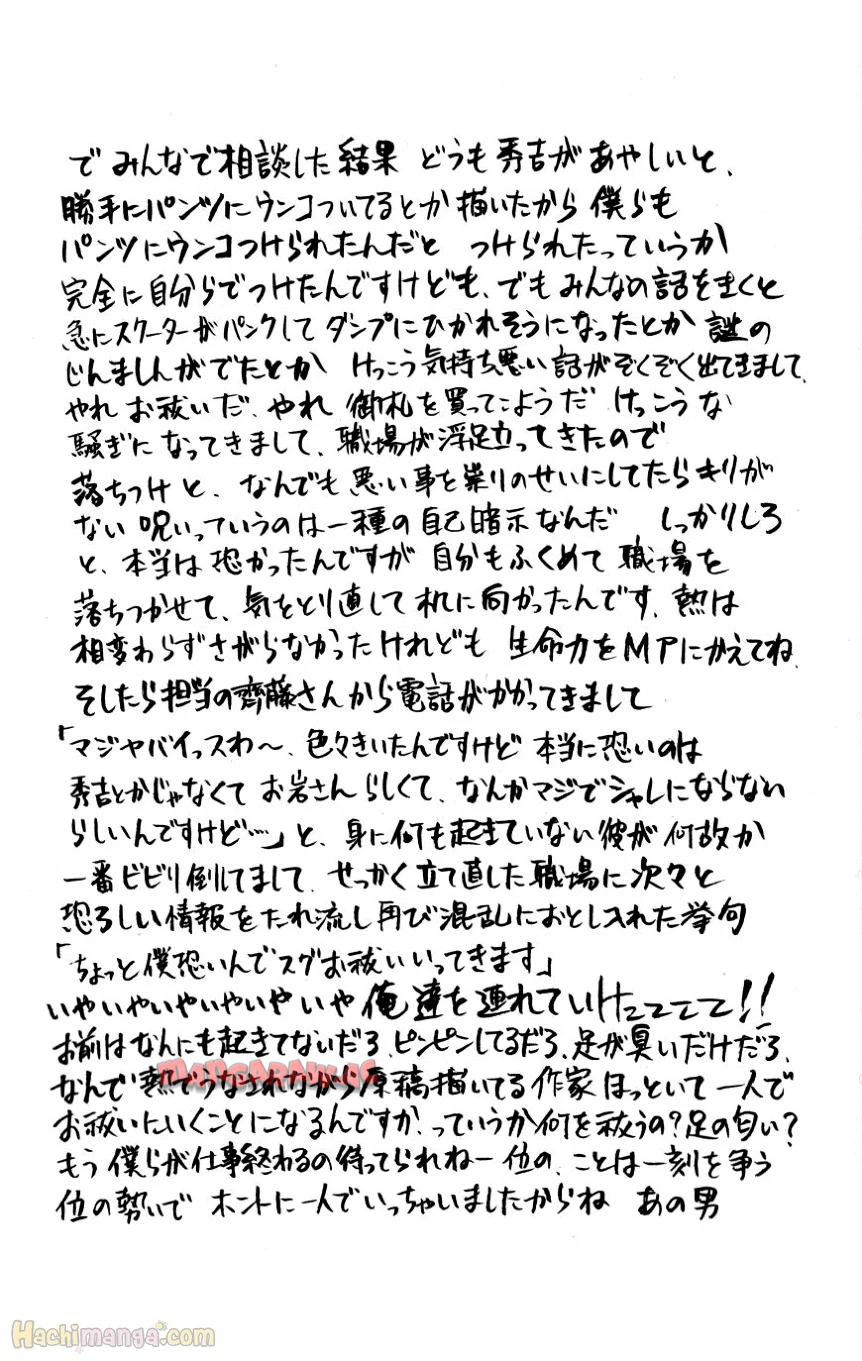 で みんなで相談した結果 どうも秀吉があやしいと、
勝手にパンツにウンコついてるとか描いたから 僕らも
パンツにウンコつけられたんだと つけられたっていうか
完全に自分らでつけたんですけども、でもみんなの話をきくと
急にスクーターがパンクしてダンプにひかれそうになったとか 謎の
じんましんがでたとか けっこう気持ち悪い話がぞくぞく出てきまして、
やれ お祓いだ、やれ 御札を買ってこようだ けっこうな
騒ぎになってきまして、職場が浮足立ってきたので
落ちつけと、なんでも悪い事を祟りのせいにしてたらキリが
ない 呪いっていうのは一種の自己暗示なんだ しっかりしろ
と、本当は恐かったんですが 自分もふくめて 職場を
落ちつかせて、気をとり直して机に向かったんです、熱は
相変わらずさがらなかったけれども 生命力をMPにかえてね
そしたら担当の齊藤さんから電話がかかってきまして
「マジヤバイっスわ〜、色々きいたんですけど 本当に恐いのは
秀吉とかじゃなくて お岩さんらしくて、なんかマジでシャレにならない
らしいんですけど…」と、身に何も起きていない彼が何故か
一番ビビり倒してまして、せっかく立て直した職場に次々と
恐ろしい情報をたれ流し再び混乱におとし入れた挙句
「ちょっと僕恐いんでスグお祓いいってきます」
いやいやいやいやいやいや俺達を連れていけェェェェ!!
お前はなんにも起きてないだろ、ピンピンしてるだろ、足が臭いだけだろ、
なんで熱でうなされながら原稿描いてる作家ほっといて一人で
お祓いにいくことになるんですか、っていうか何を祓うの?足の匂い?
もう僕らが仕事終わるの待ってられねー位の、ことは一刻を争う
位の勢いで ホントに一人でいっちゃいましたからね あの男
MANGARAW.AC
Hachimanga.com